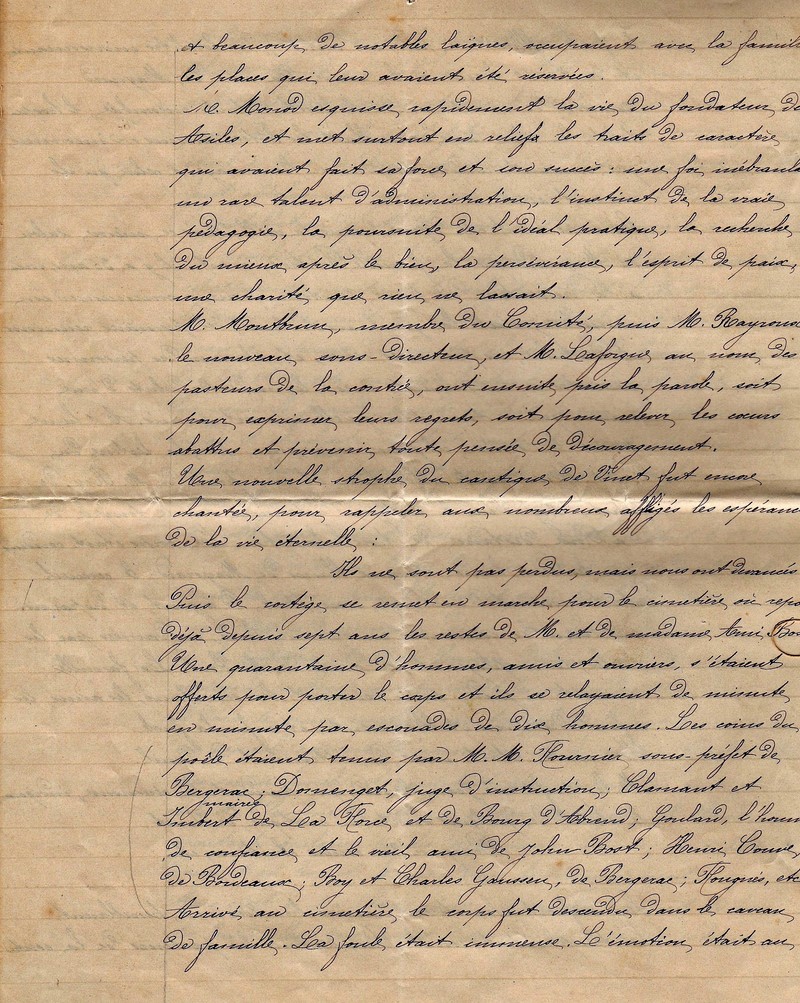 et beaucoup de notables laïques, occupaient avec la famill
les places qui leur avaient été réservées.
M. Monod esquisse rapidement la vie du fondateur de
Asiles, et met surtout en relief les traits de caractère
qui avaient fait sa force et son succès : une foi inébranla
un rare talent d'administration, l'instinct de la vraie
pédagogie, la poursuite de l'idéal pratique, la recherche
du mieux après le bien, la persévérance, l'esprit de paix,
une charité que rien ne lassait.
M. Montbrun, membre du Comité, puis M. Rayroux
le nouveau sous-directeur, et M. Laforgue au nom des
pasteurs de la contrée, ont ensuite pris la parole, soit
pour exprimer leurs regrets, soit pour relever les cœurs
abattus et prévenir toute pensée de découragement.
Une nouvelle strophe du cantique de Vinet fut encore
chantée, pour rappeler aux nombreux affligés les espéranc
de la vie éternelle :
Ils ne sont pas perdus, mais nous ont devancés
Puis le cortège se remet en marche pour le cimetière où repo
déjà depuis sept ans les restes de M. et de madame Ami Bos
Une quarantaine d'hommes, amis et ouvriers, s'étaient
offerts pour porter le corps et ils se relayaient de minute
en minute par escouades de dix hommes. Les coins du
poêle étaient tenus par M. M. Fournier sous-préfet de
Bergerac ; Domenget, juge d'instruction ; Clamant et
maires
Imbert de La Force et de Bourg d'Abrend ; Goulard, l'hom
de confiance et le vieil ami de John Bost ; Henri Couve,
de Bordeaux ; Boy et Charles Gaussen, de Bergerac ; Fougnès, etc
Arrivé au cimetière le corps fut descendu dans le caveau
de famille. La foule était immense. L'émotion était au